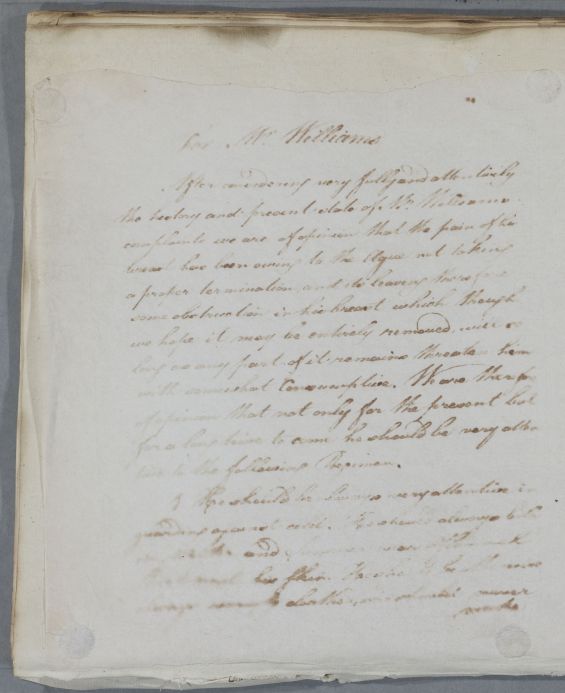 For Mr. Williams
After considering very fully and attentively
the history and present state of Mr. Williams
complaints we are of opinion that the pain of his
breast has been owing to the Ague not taking
a proper termination and its leaving therefore
some obstruction in his breast which though
we hope it may be entirely removed, will so
long as any part of it remains threaten him
with somewhat Consumptive. We are therefore
of opinion that not only for the present but
for a long time to come he should be very atten
tive to the following Regimen.
He should be always very attentive in
guarding against cold. He should always
and
his skin. He should
always cloaths, never